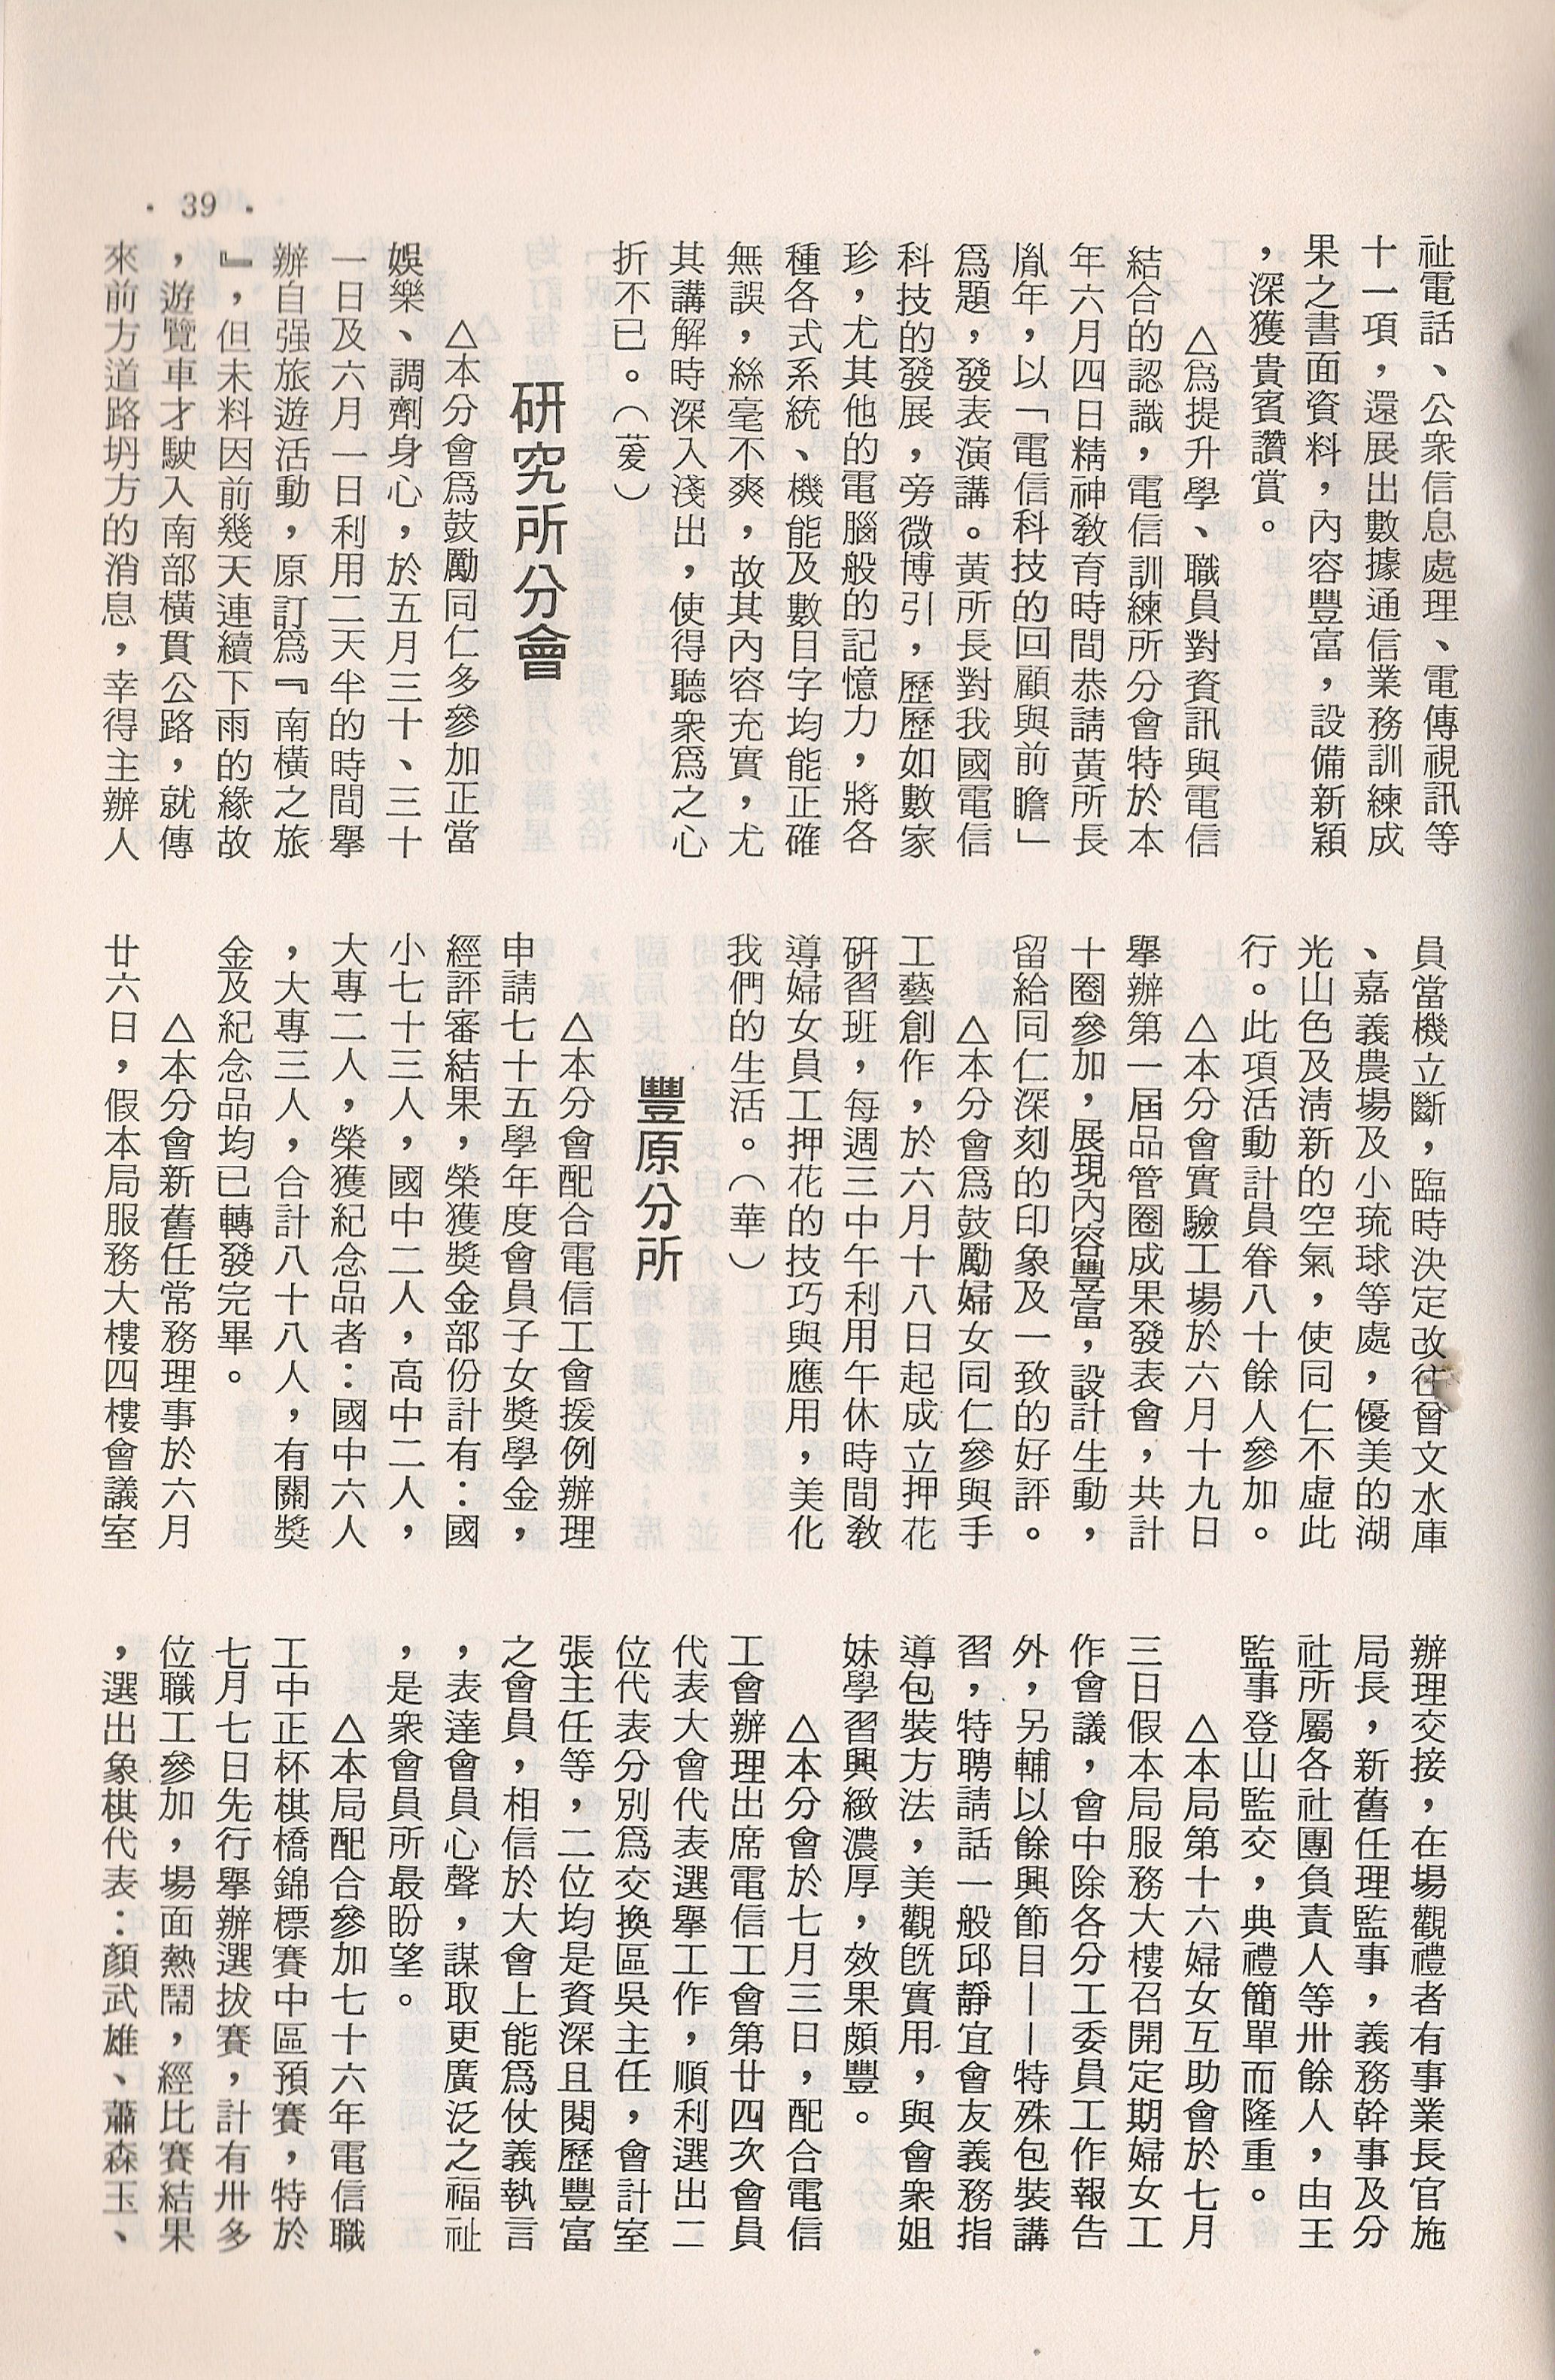 祉電話、公衆信息處理、電傳視訊等
十一項，還展出數據通信業務訓練成
果之書面資料，內容豐富，設備新穎
，深獲貴賓讚賞。
△爲提升學、職員對資訊與電信
結合的認識，電信訓練所分會特於本
年六月四日精神敎育時間恭請黃所長
胤年，以「電信科技的回顧與前瞻」
爲題，發表演講。黃所長對我國電信
科技的發展，旁微博引，歷歷如數家
珍，尤其他的電腦般的記憶力，將各
種各式系統、機能及數目字均能正確
無誤，絲毫不爽，故其內容充實，尤
其講解時深入淺出，使得聽衆爲之心
折不已。（萲）
研究所分會
△本分會爲鼓勵同仁多參加正當
娛樂、調劑身心，於五月三十、三十
一日及六月一日利用二天半的時間舉
辦自强旅遊活動，原訂爲『南橫之旅
』，但未料因前幾天連續下雨的緣故
，遊覽車才駛入南部橫貫公路，就傳
來前方道路坍方的消息，幸得主辦人
員當機立斷，臨時決定改往曾文水庫
、嘉義農場及小琉球等處，優美的湖
光山色及淸新的空氣，使同仁不虛此
行。此項活動計員眷八十餘人參加。
△本分會實驗工場於六月十九日
舉辦第一屆品管圈成果發表會，共計
十圈參加，展現內容豐富，設計生動，
留給同仁深刻的印象及一致的好評。
△本分會爲鼓勵婦女同仁參與手
工藝創作，於六月十八日起成立押花
硏習班，每週三中午利用午休時間敎
導婦女員工押花的技巧與應用，美化
我們的生活。（華）
豐原分所
△本分會配合電信工會援例辦理
申請七十五學年度會員子女獎學金，
經評審結果，榮獲獎金部份計有：國
小七十三人，國中二人，高中二人，
大專二人，榮獲紀念品者：國中六人
，大專三人，合計八十八人，有關獎
金及紀念品均已轉發完畢。
△本分會新舊任常務理事於六月
廿六日，假本局服務大樓四樓會議室
辦理交接，在場觀禮者有事業長官施
局長，新舊任理監事，義務幹事及分
社所屬各社團負責人等卅餘人，由王
監事登山監交，典禮簡單而隆重。
△本局第十六婦女互助會於七月
三日假本局服務大樓召開定期婦女工
作會議，會中除各分工委員工作報告
外，另輔以餘興節目——特殊包裝講
習，特聘請話一般邱靜宜會友義務指
導包裝方法，美觀旣實用，與會衆姐
妹學習興緻濃厚，效果頗豐。
△本分會於七月三日，配合電信
工會辦理出席電信工會第廿四次會員
代表大會代表選舉工作，順利選出二
位代表分別爲交換區吳主任，會計室
張主任等，二位均是資深且閱歷豐富
之會員，相信於大會上能爲仗義執言
，表達會員心聲，謀取更廣泛之福祉
，是衆會員所最盼望。
△本局配合參加七十六年電信職
工中正杯棋橋錦標賽中區預賽，特於
七月七日先行舉辦選拔賽，計有卅多
位職工參加，場面熱鬧，經比賽結果
，選出象棋代表：顏武雄、蕭森玉、
· 39 ·